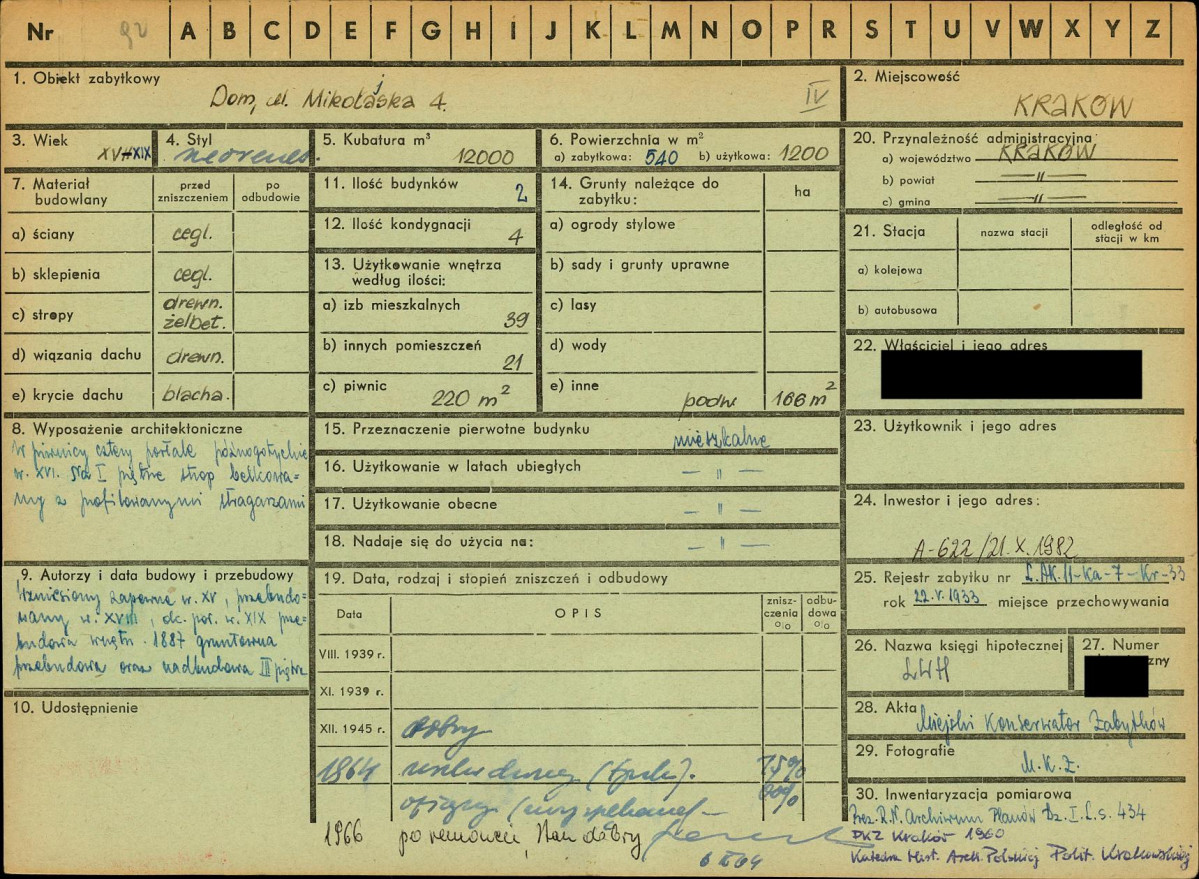 Nr 92 A B C D E F G H I J K L M N O P R S T U V W X Y Z
1. Obiekt zabytkowy
Dom, ul. Mikołajska 4.
IV
2. Miejscowość
KRAKÓW
3. Wiek
XV-XIX
4. Styl
neorenes.
5. Kubatura m³
12000
6. Powierzchnia w m²
a) zabytkowa: 540 b) użytkowa: 1200
20. Przynależność administracyjna
a) województwo KRAKÓW
b) powiat —"—
c) gmina —"—
7. Materiał budowlany
przed zniszczeniem
po odbudowie
a) ściany cegl.
b) sklepienia cegl.
c) stropy drewn. żelbet.
d) wiązania dachu drewn.
e) krycie dachu blacha.
11. Ilość budynków 2
12. Ilość kondygnacji 4
13. Użytkowanie wnętrza
według ilości:
a) izb mieszkalnych 39
b) innych pomieszczeń 21
c) piwnic 220 m²
14. Grunty należące do
zabytku:
ha
a) ogrody stylowe
b) sady i grunty uprawne
c) lasy
d) wody
e) inne podw 166 m²
21. Stacja
nazwa stacji
odległość od
stacji w km
a) kolejowa
b) autobusowa
22. Właściciel i jego adres
8. Wyposażenie architektoniczne
W piwnicy cztery portale późnogotyckie
w. XVI. Na I piętrze strop belkowa-
ny z profilowanymi stragarzami
15. Przeznaczenie pierwotne budynku mieszkalne
16. Użytkowanie w latach ubiegłych — " —
17. Użytkowanie obecne — " —
18. Nadaje się do użycia na: — " —
23. Użytkownik i jego adres
24. Inwestor i jego adres:
A-622/21.X.1982
9. Autorzy i data budowy i przebudowy
Wzniesiony zapewne w. XV, przebudo-
wany w. XVIII, dc. poł. w. XIX prze-
budowa wnętrz. 1887 gruntowna
przebudowa oraz nadbudowa III piętra
10. Udostępnienie
19. Data, rodzaj i stopień zniszczeń i odbudowy
Data
OPIS
znisz-
czenia
%
odbu-
dowa
%
VIII. 1939 r.
XI. 1939 r.
XII. 1945 r. dobry
1964 75%
oficyny
1966 po remoncie, stan dobry
25. Rejestr zabytku nr L.AK.II-Ka-7-Kr-33
rok 22.V.1933 miejsce przechowywania
26. Nazwa księgi hipotecznej
LWH
27. Numer
28. Akta
Miejski Konserwator Zabytków
29. Fotografie
M.K.Z.
30. Inwentaryzacja pomiarowa
Prez. R.N. Archiwum Planów Dz. I. L.s. 434
PKZ Kraków 1960
Katedra Hist. Arch. Polskiej Polit. Krakowskiej